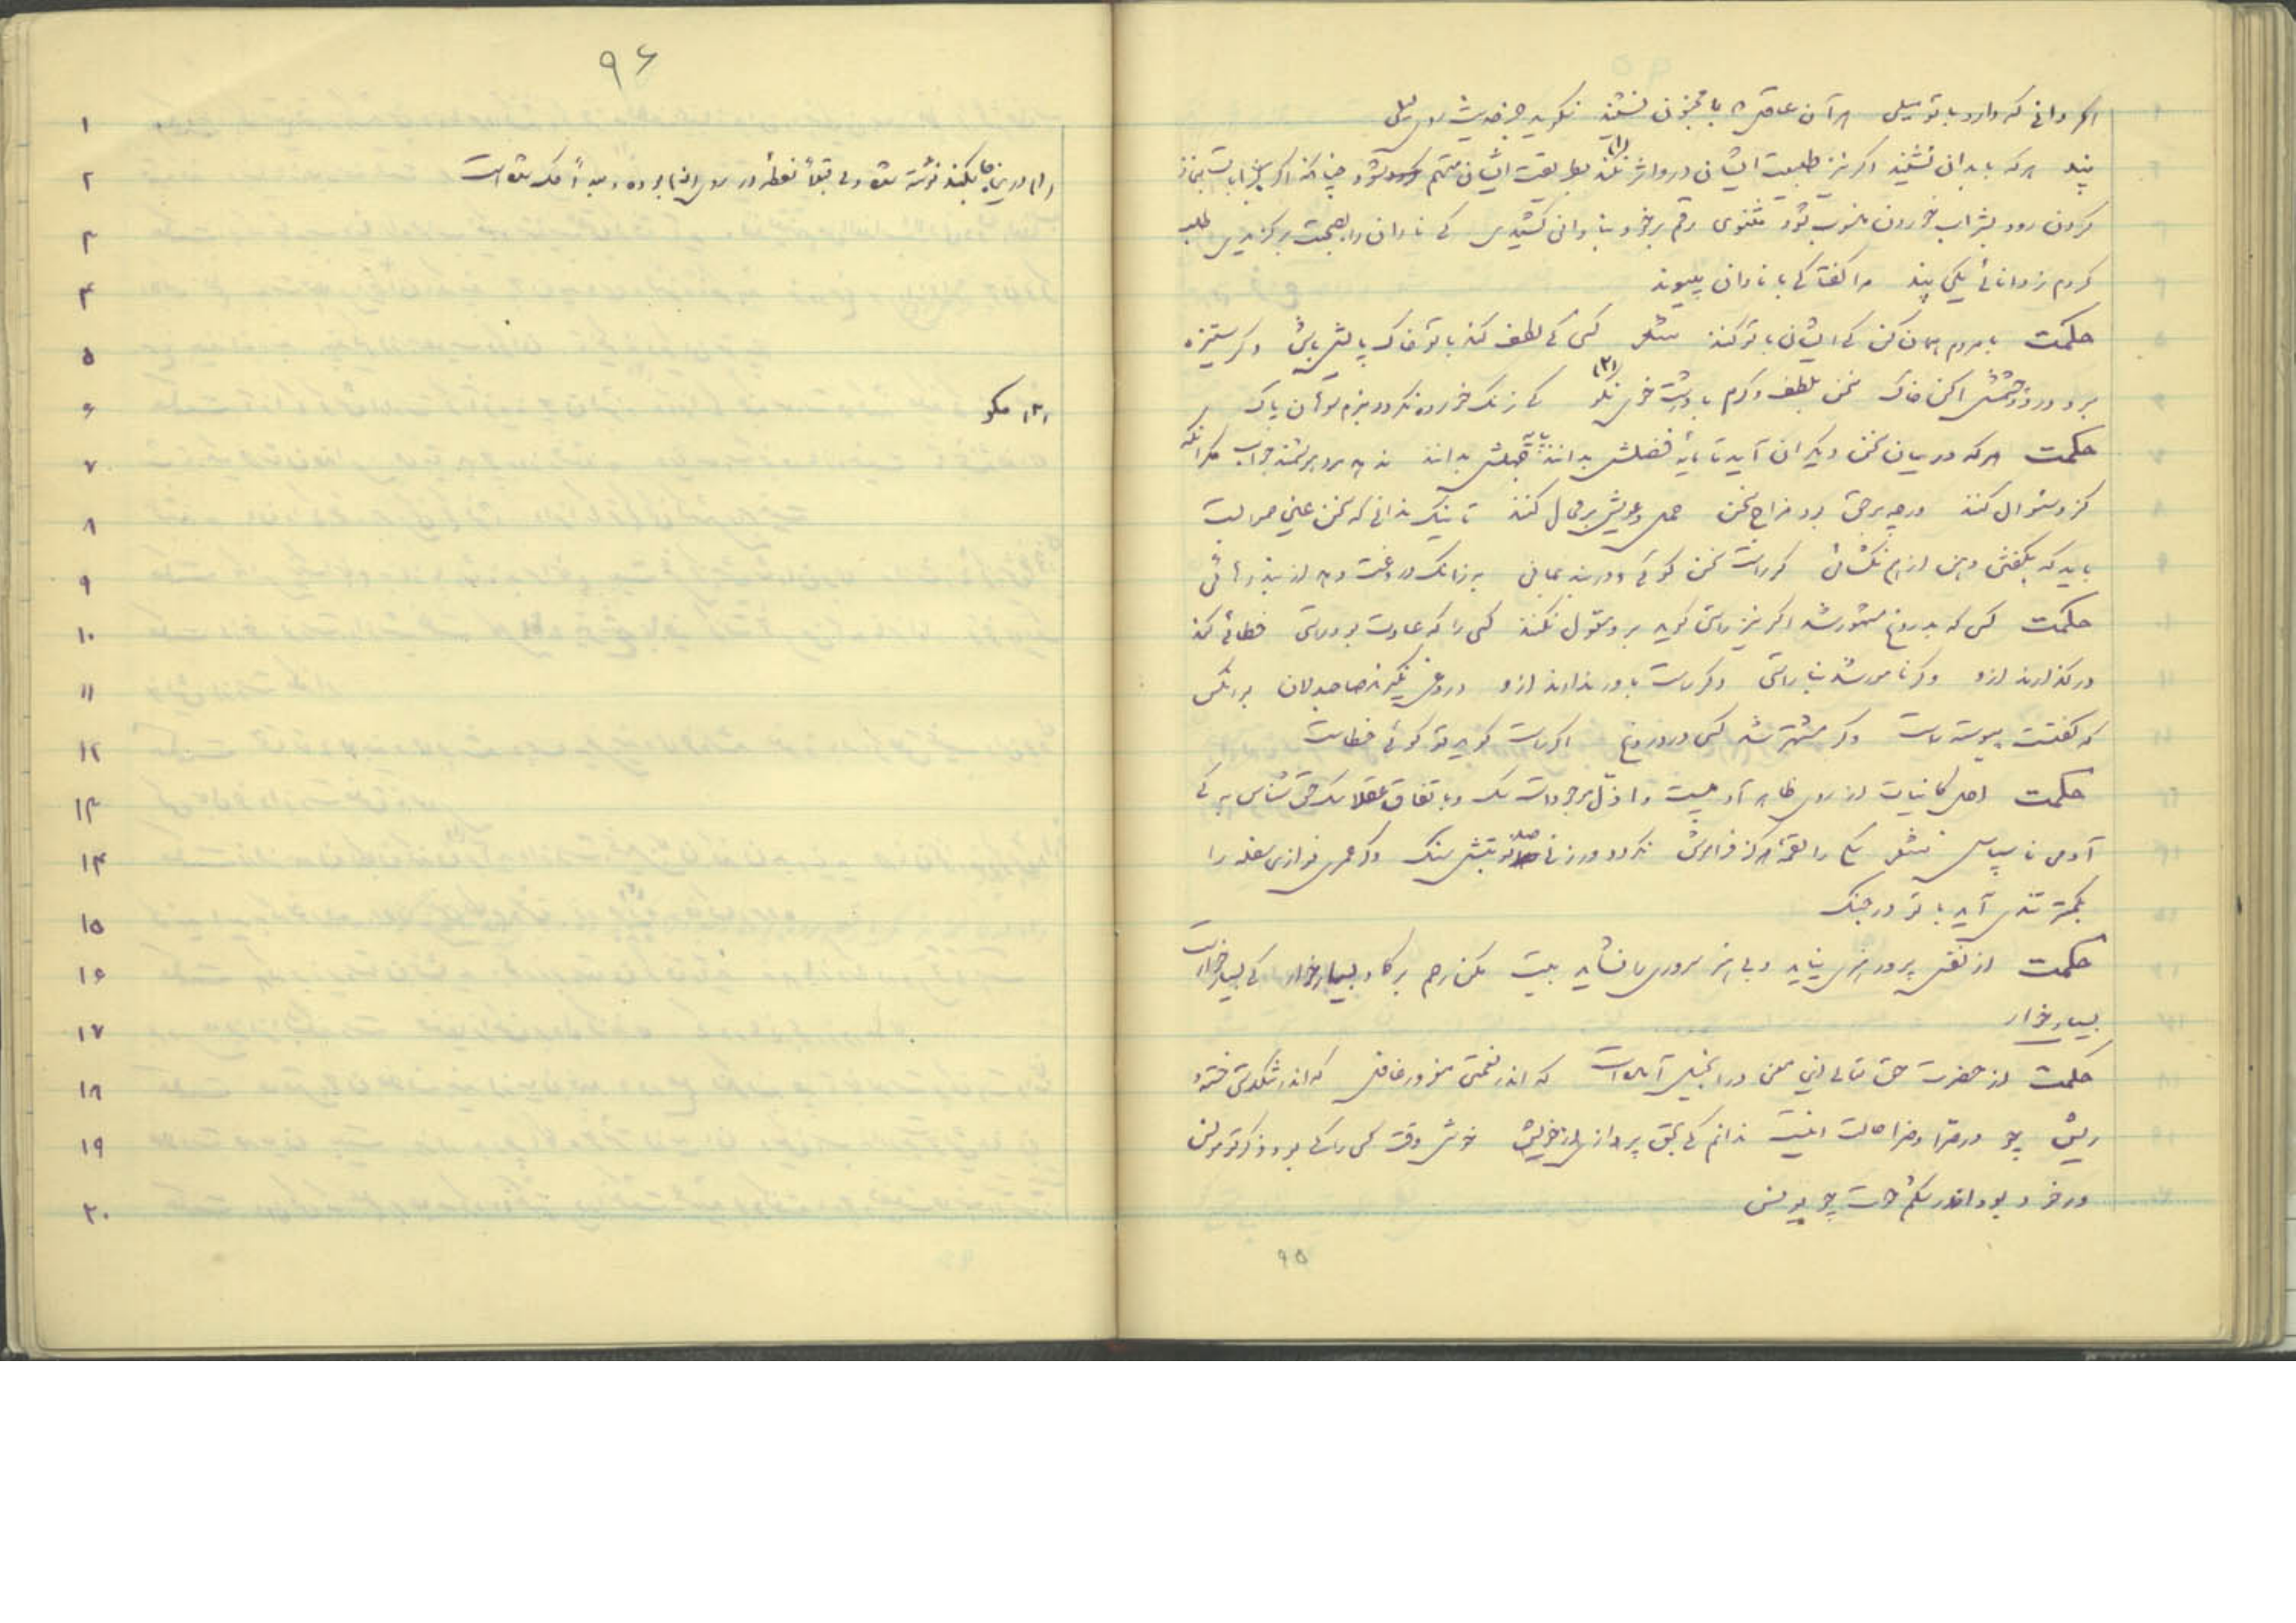 اگر دانی که دارد با تو میلی هر آن عاقل که با مجنون نشیند نگوید جز حدیث روی لیلی
پند هر که با بدان نشیند اگر نیز طبیعت ایشان درو اثر نکند (۱) بطریقت ایشان متهم شود چنانکه اگر بخرابات بنماز
کردن رود بشراب خوردن منسوب شود مثنوی رقم بر خود بنادانی کشیدی کی نادان را بصحبت برگزیدی طلب
کردم ز دانائی یکی پند مرا گفتا کی با نادان مپیوند
حکمت با مردم همان کن کی ایشان با تو کنند شعر کسی کی لطف کند با تو خاک پایش باش وگر ستیزه
برد در دو چشمش اکن خاک سخن بلطف و کرم با درشت خوی نکو (۲) کی زنک خورده نکردد بنرم سوهان پاک
حکمت هر که در میان سخن دیگران آید تا پایه فضلش بدانند پایه جهلش بدانند ندهد مرد هوشمند جواب مگر آنگه
کزو سئوال کنند ورچه بر حق بود مزاج سخن حمل دعویش بر محال کنند تا نیک ندانی که سخن عین صوابست
باید که بگفتن دهن از هم نگشائی گر راست سخن گوئی و در بند بمانی به زانک دروغت دهد از بند رهائی
حکمت کسی که بدروغ مشهور شد اگر نیز راستی گوید برو قبول نکنند کسی را که عادت بود راستی خطائی کند
درگذارند ازو وگر نامور شد بناراستی وگر راست باور ندارند ازو دروغی نگیرند صاحبدلان بر آنکس
که گفتست پیوسته راست وگر مشتهر شد کسی در دروغ اگر راست گوید تو گوئی خطاست
حکمت اجل کائنات از روی ظاهر آدمیست و اذل موجودات سک و باتفاق عقلا سک حق شناس به کی
آدمی ناسپاس شعر سکی را لقمه هرگز فراموش نگردد ور زنی صد نوبتش سنک وگر عمری نوازی سفله را
بکمتر تندی آید با تو در جنک
حکمت از نفس پرور هنروری نیاید و بی هنر سروری را نشاید بیت مکن رحم بر گاو بسیار خوار کی بسیار خوارست
بسیار خوار
حکمت از حضرت حق تعالی این معنی در انجیل آمده است که اندر نعمتی مغرور و غافل که اندر تنگدستی خسته و
ریش چو در سرا و ضرا حالت اینست ندانم کی بحق پردازی از خویش خوش وقت کسی را کی بود ذکر تو مونس
در خود بود اندر شکم حوت چو یونس
۹۵
۹۶
۱ ۲ ۳ ۴ ۵ ۶ ۷ ۸ ۹ ۱۰ ۱۱ ۱۲ ۱۳ ۱۴ ۱۵ ۱۶ ۱۷ ۱۸ ۱۹ ۲۰
(۱) نکند نوشته شده ولی قبلاً نقطه در روی بوده و بعداً حک شده است
(۲) مگو